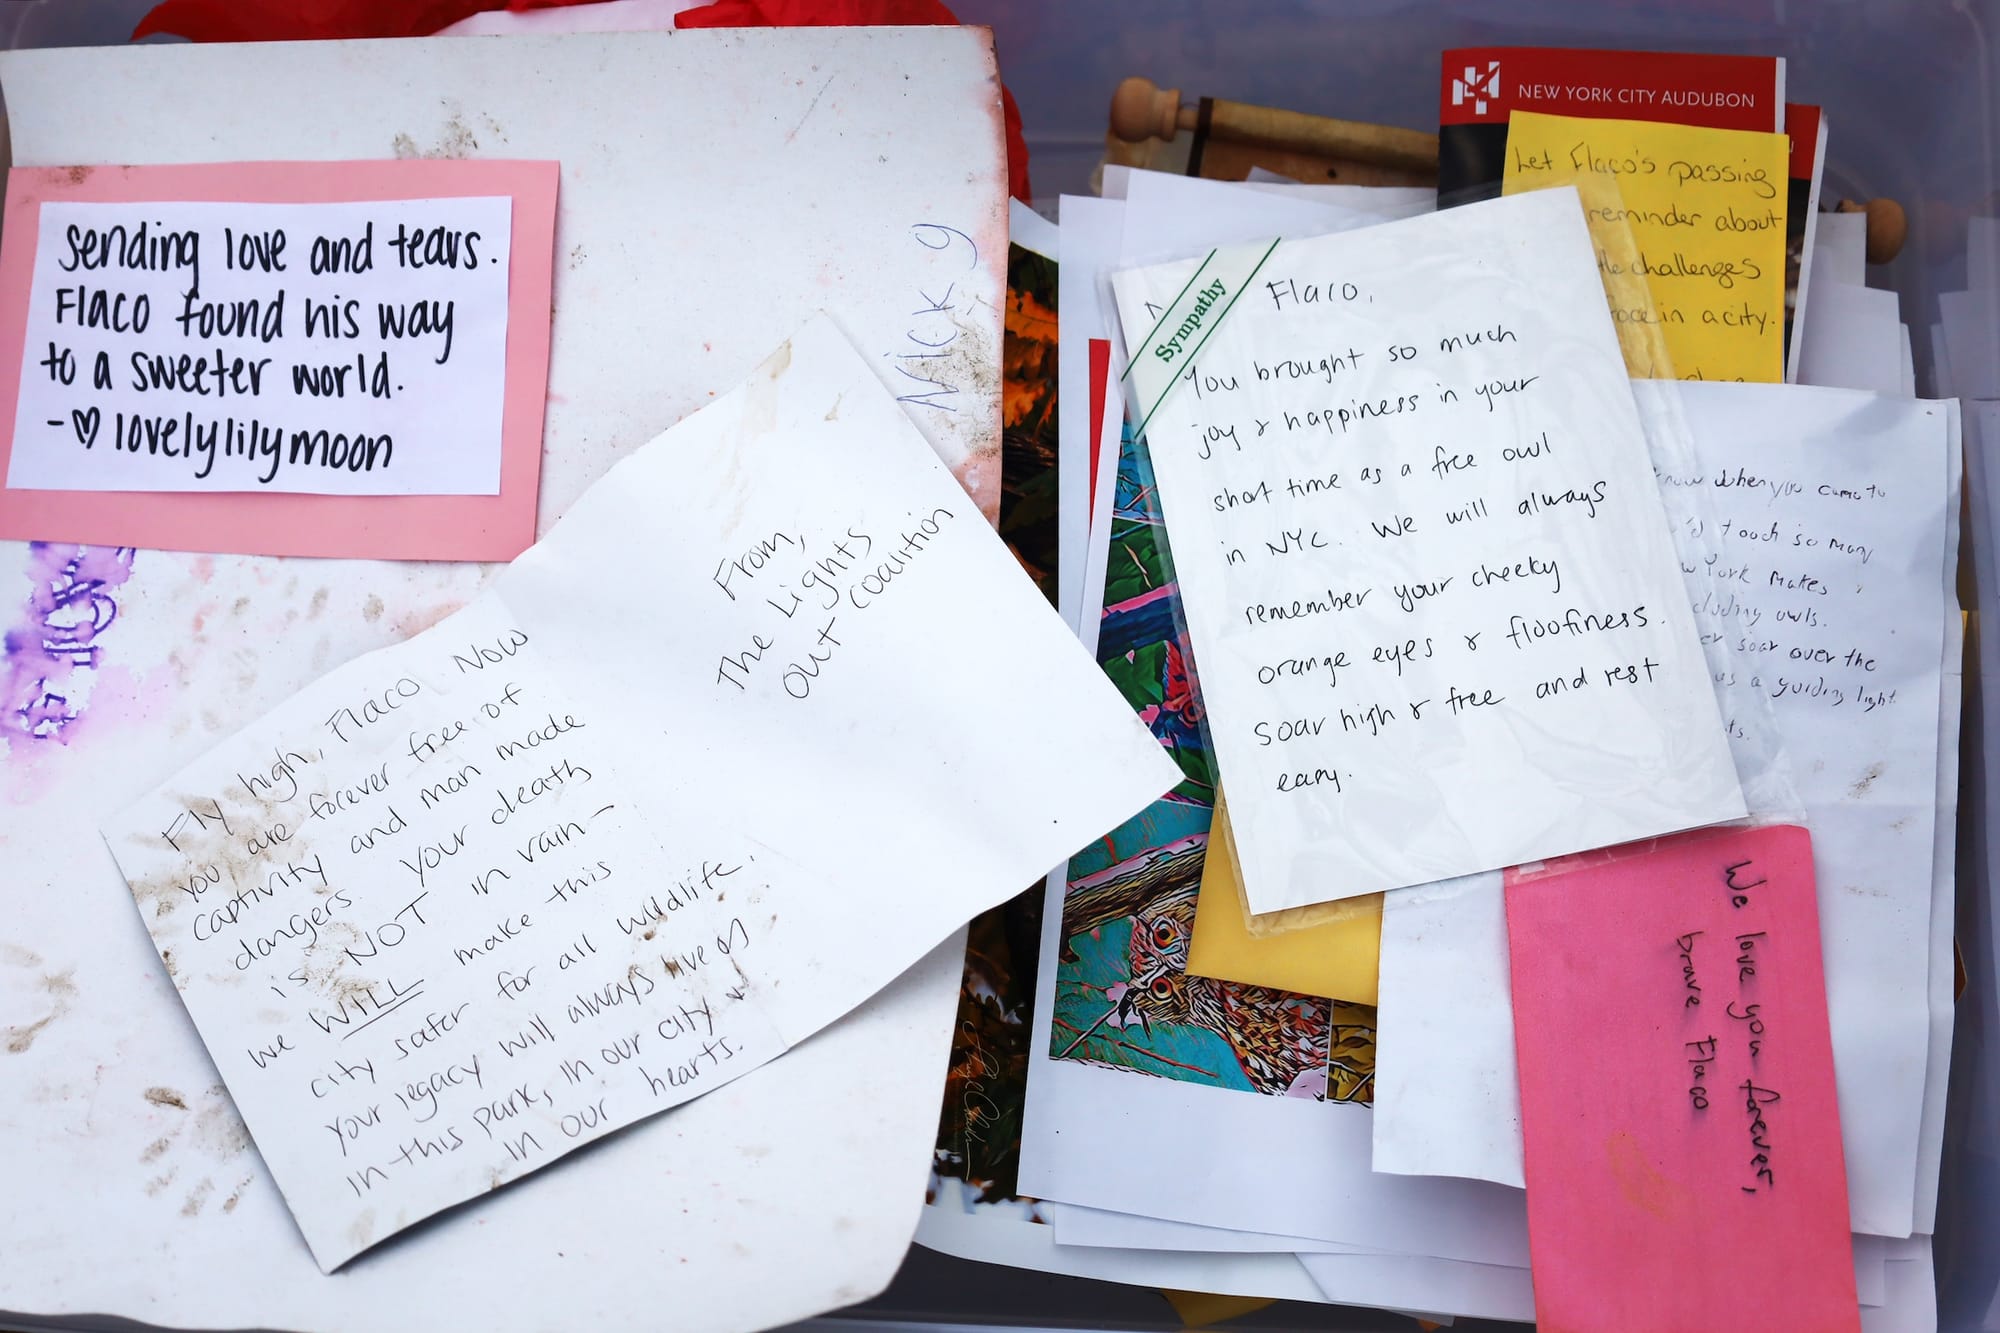 Sending love and tears.
Flaco found his way
to a sweeter world.
-♡ lovelylilymoon
Nick 9
From,
The Lights
Out Coalition
Fly high, Flaco. Now
you are forever free of
captivity and man made
dangers. Your death
is NOT in vain-
we WILL make this
city safer for all wildlife.
Your legacy will always live on
in this park, in our city &
in our hearts.
NEW YORK CITY AUDUBON
Let Flaco's passing
reminder about
the challenges
face in a city.
Sympathy
Flaco,
You brought so much
joy & happiness in your
short time as a free owl
in NYC. We will always
remember your cheeky
orange eyes & floofiness.
Soar high & free and rest
easy.
know when you came to
touch so many
York makes
owls.
soar over the
as a guiding light
We love you forever,
brave Flaco